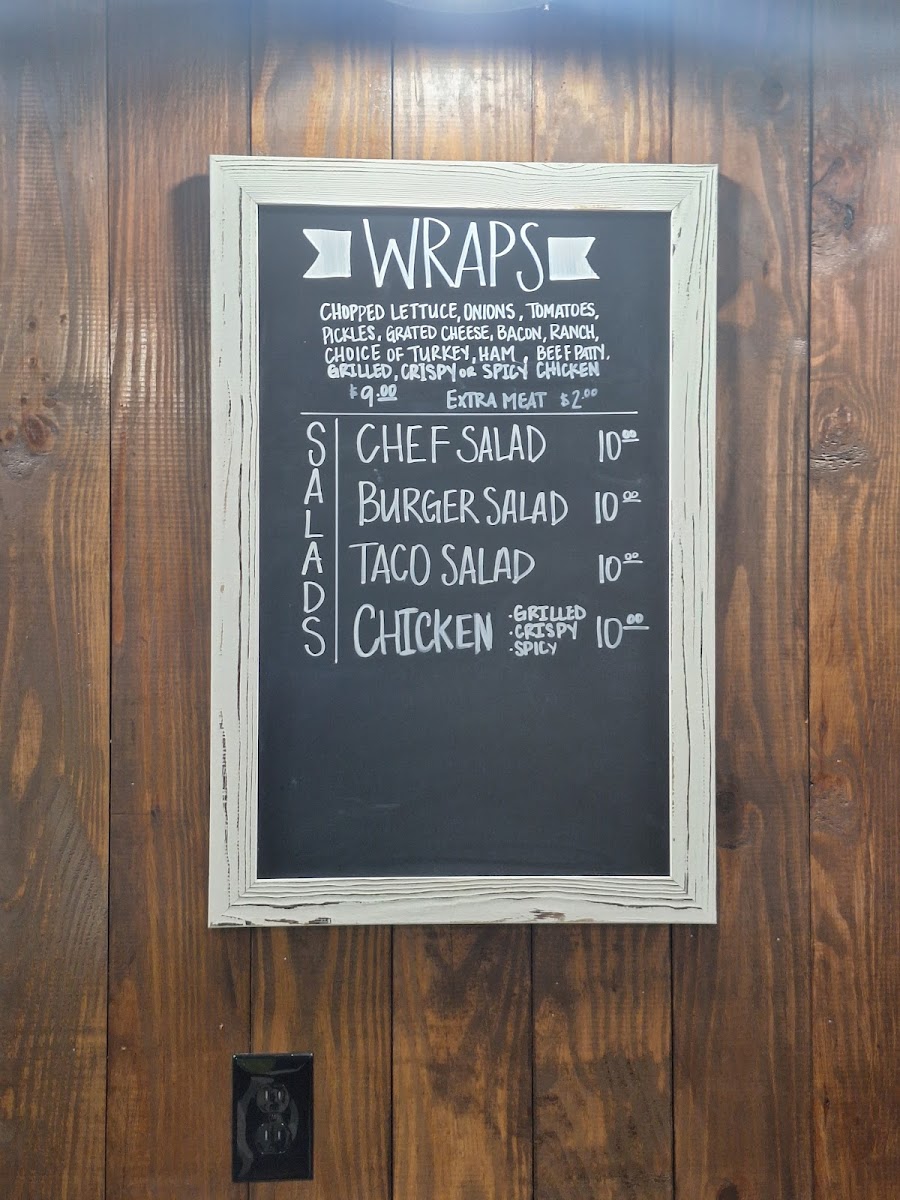 WRAPS
CHOPPED LETTUCE, ONIONS, TOMATOES,
PICKLES, GRATED CHEESE, BACON, RANCH,
CHOICE OF TURKEY, HAM, BEEF PATTY,
GRILLED, CRISPY OR SPICY CHICKEN
$9.00 EXTRA MEAT $2.00
SALADS
CHEF SALAD 10.00
BURGER SALAD 10.00
TACO SALAD 10.00
CHICKEN 10.00
·GRILLED
·CRISPY
·SPICY